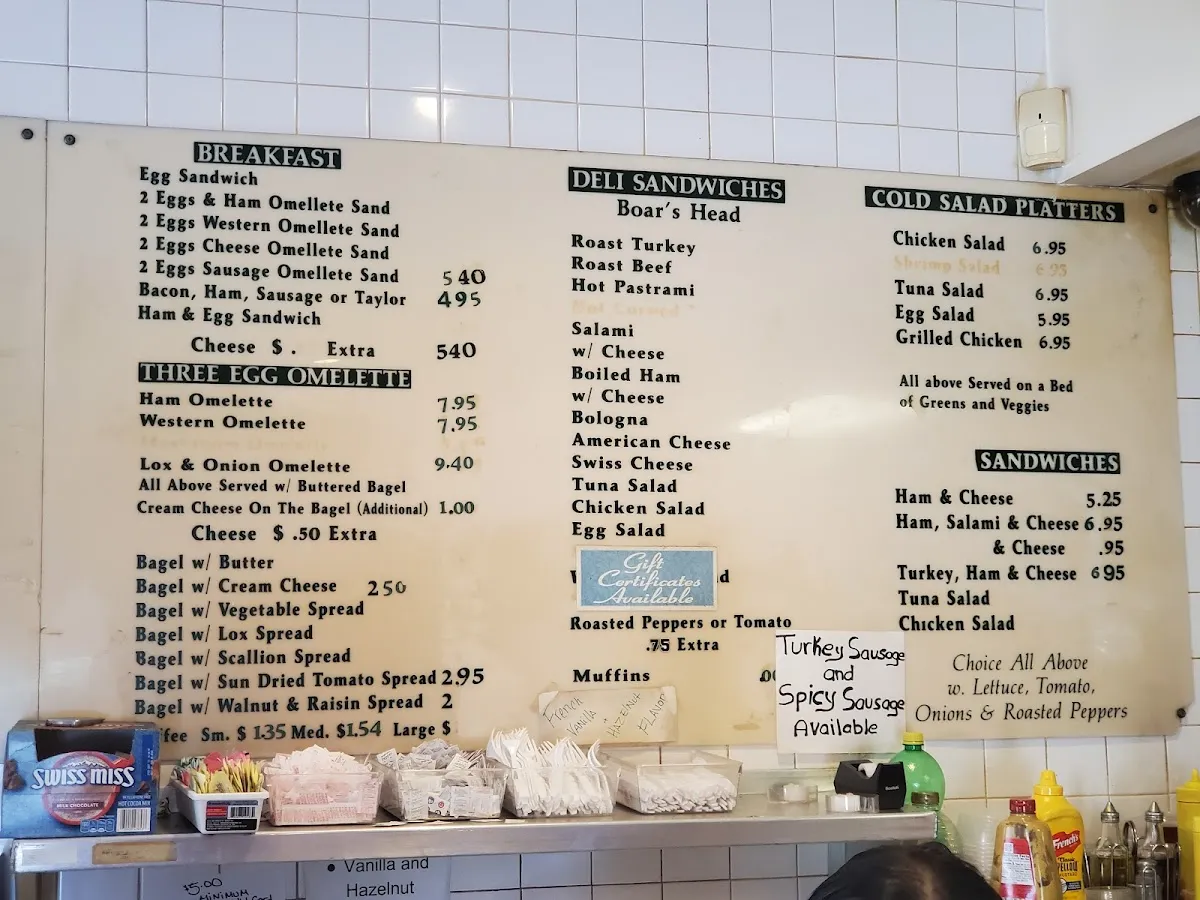 BREAKFAST
Egg Sandwich
2 Eggs & Ham Omellete Sand
2 Eggs Western Omellete Sand
2 Eggs Cheese Omellete Sand
2 Eggs Sausage Omellete Sand 540
Bacon, Ham, Sausage or Taylor 495
Ham & Egg Sandwich
Cheese $ . Extra 540
THREE EGG OMELETTE
Ham Omelette 7.95
Western Omelette 7.95
Lox & Onion Omelette 9.40
All Above Served w/ Buttered Bagel
Cream Cheese On The Bagel (Additional) 1.00
Cheese $ .50 Extra
Bagel w/ Butter
Bagel w/ Cream Cheese 250
Bagel w/ Vegetable Spread
Bagel w/ Lox Spread
Bagel w/ Scallion Spread
Bagel w/ Sun Dried Tomato Spread 2.95
Bagel w/ Walnut & Raisin Spread 2
ffee Sm. $ 1.35 Med. $1.54 Large $
DELI SANDWICHES
Boar's Head
Roast Turkey
Roast Beef
Hot Pastrami
Hot Corned
Salami
w/ Cheese
Boiled Ham
w/ Cheese
Bologna
American Cheese
Swiss Cheese
Tuna Salad
Chicken Salad
Egg Salad
Gift
Certificates
Available
Roasted Peppers or Tomato
.75 Extra
Muffins .00
French
Vanilla
HAZELNUT
FLAVOR
Turkey Sausage
and
Spicy Sausage
Available
COLD SALAD PLATTERS
Chicken Salad 6.95
Shrimp Salad 6 95
Tuna Salad 6.95
Egg Salad 5.95
Grilled Chicken 6.95
All above Served on a Bed
of Greens and Veggies
SANDWICHES
Ham & Cheese 5.25
Ham, Salami & Cheese 6.95
& Cheese .95
Turkey, Ham & Cheese 695
Tuna Salad
Chicken Salad
Choice All Above
w. Lettuce, Tomato,
Onions & Roasted Peppers
SWISS MISS
MILK CHOCOLATE
HOT COCOA MIX
$5.00
MINIMUM
• Vanilla and
Hazelnut
French's
Classic
YELLOW
MUSTARD